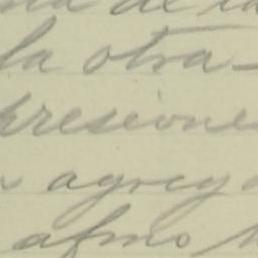 de la
la otra
presione
agreg
afmo